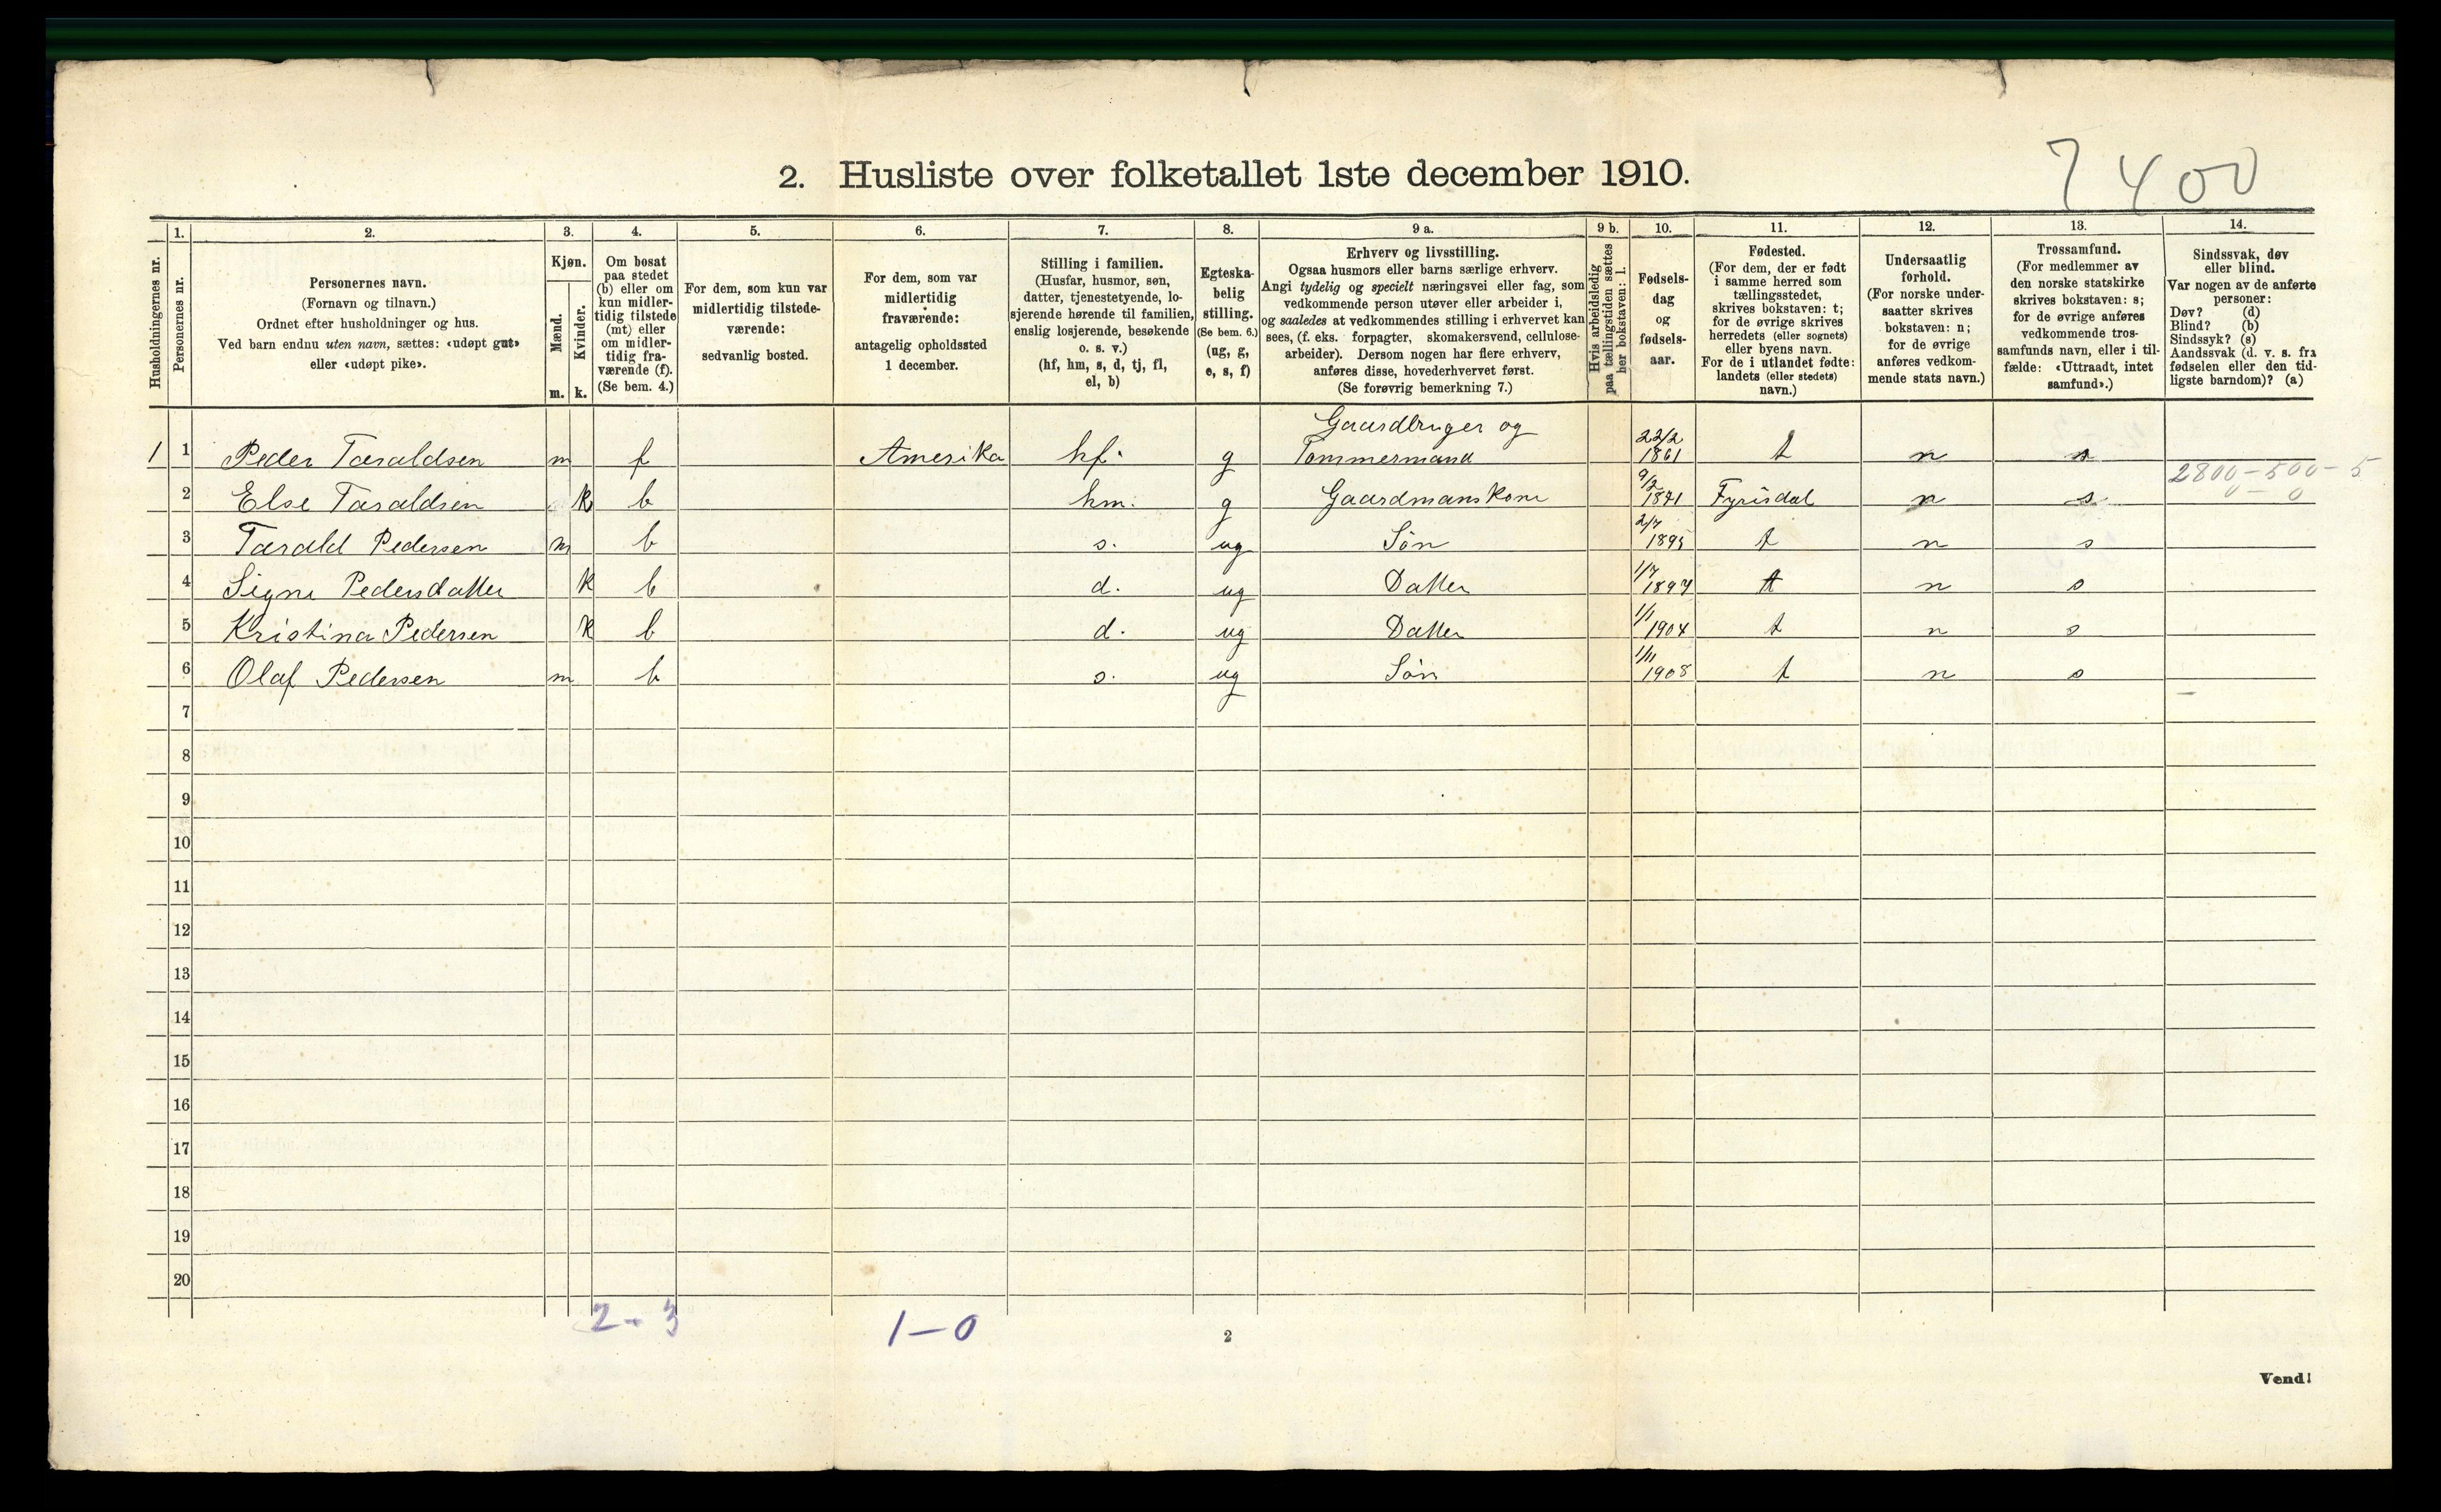 7400
2. Husliste over folketallet 1ste december 1910.
1. 2. 3. 4. 5. 6. 7. 8. 9 a. 9 b. 10. 11. 12. 13. 14.
Husholdningernes nr.
Personernes nr.
Personernes navn.
(Fornavn og tilnavn.)
Ordnet efter husholdninger og hus.
Ved barn endnu uten navn, sættes: «udøpt gut»
eller «udøpt pike».
Kjøn.
Mænd.
Kvinder.
m. k.
Om bosat
paa stedet
(b) eller om
kun midler-
tidig tilstede
(mt) eller
om midler-
tidig fra-
værende (f).
(Se bem. 4.)
For dem, som kun var
midlertidig tilstede-
værende:
sedvanlig bosted.
For dem, som var
midlertidig
fraværende:
antagelig opholdssted
1 december.
Stilling i familien.
(Husfar, husmor, søn,
datter, tjenestetyende, lo-
sjerende hørende til familien,
enslig losjerende, besøkende
o. s. v.)
(hf, hm, s, d, tj, fl,
el, b)
Egteska-
belig
stilling.
(Se bem. 6.)
(ug, g,
e, s, f)
Erhverv og livsstilling.
Ogsaa husmors eller barns særlige erhverv.
Angi tydelig og specielt næringsvei eller fag, som
vedkommende person utøver eller arbeider i,
og saaledes at vedkommendes stilling i erhvervet kan
sees, (f. eks. forpagter, skomakersvend, cellulose-
arbeider). Dersom nogen har flere erhverv,
anføres disse, hovederhvervet først.
(Se forøvrig bemerkning 7.)
Hvis arbeidsledig
paa tællingstiden sættes
her bokstaven: l.
Fødsels-
dag
og
fødsels-
aar.
Fødested.
(For dem, der er født
i samme herred som
tællingsstedet,
skrives bokstaven: t;
for de øvrige skrives
herredets (eller sognets)
eller byens navn.
For de i utlandet fødte:
landets (eller stedets)
navn.)
Undersaatlig
forhold.
(For norske under-
saatter skrives
bokstaven: n;
for de øvrige
anføres vedkom-
mende stats navn.)
Trossamfund.
(For medlemmer av
den norske statskirke
skrives bokstaven: s;
for de øvrige anføres
vedkommende tros-
samfunds navn, eller i til-
fælde: «Uttraadt, intet
samfund».)
Sindssvak, døv
eller blind.
Var nogen av de anførte
personer:
Døv? (d)
Blind? (b)
Sindssyk? (s)
Aandssvak (d. v. s. fra
fødselen eller den tid-
ligste barndom)? (a)
1 1 Peder Taraldsen m f Amerika hf. g Gaardbruger og Tommermand 22/2 1861 t n s
2800-500-5
0-0
2 Else Taraldsen k b hm. g Gaardmanskone 9/2 1871 Fyrisdal n s
3 Tarald Pedersen m b s. ug Søn 2/7 1895 t n s
4 Signe Pedersdatter k b d. ug Datter 1/7 1897 t n s
5 Kristina Pedersen k b d. ug Datter 1/1 1904 t n s
6 Olaf Pedersen m b s. ug Søn 1/11 1908 t n s
7
8
9
10
11
12
13
14
15
16
17
18
19
20
2-3 1-0
2
Vend!